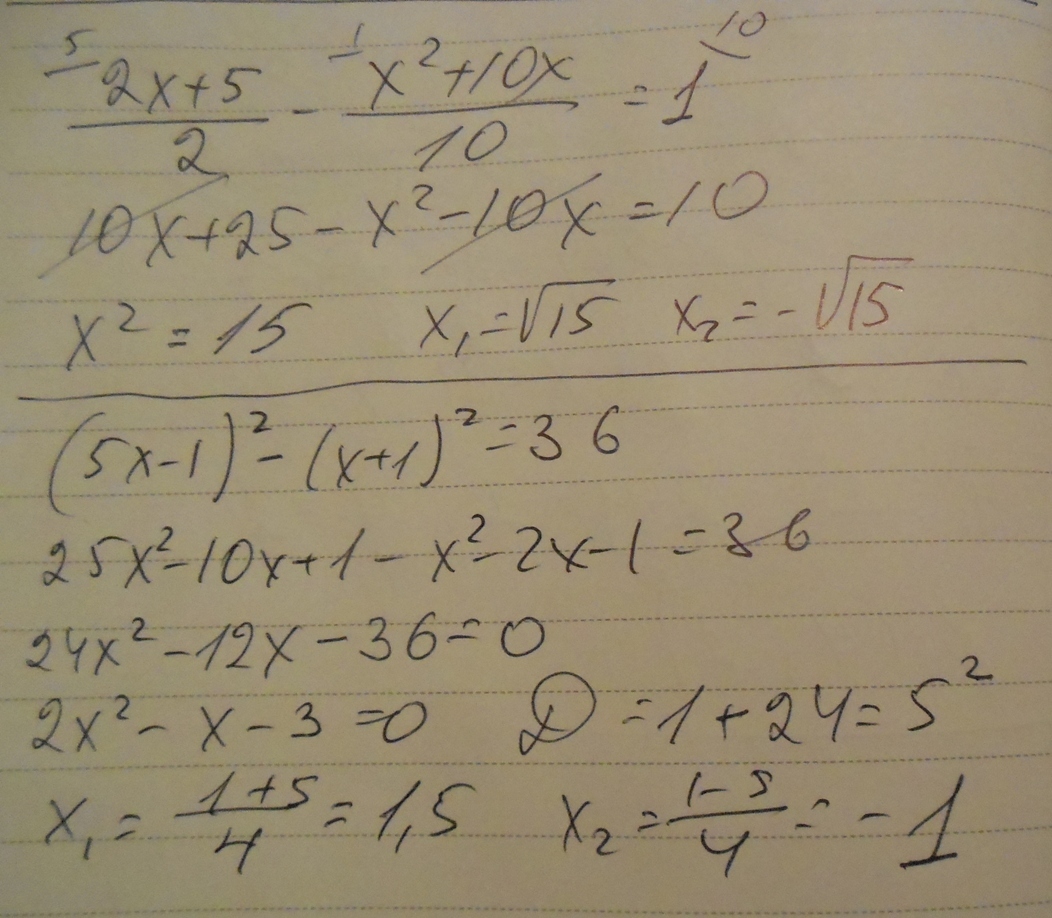 5 (2x+5)/2 - 1 (x²+10x)/10 = 1 10
10x+25-x²-10x=10
x²=15 x₁=√15 x₂=-√15
(5x-1)²-(x+1)²=36
25x²-10x+1-x²-2x-1=36
24x²-12x-36=0
2x²-x-3=0 D=1+24=5²
x₁=(1+5)/4=1,5 x₂=(1-5)/4=-1